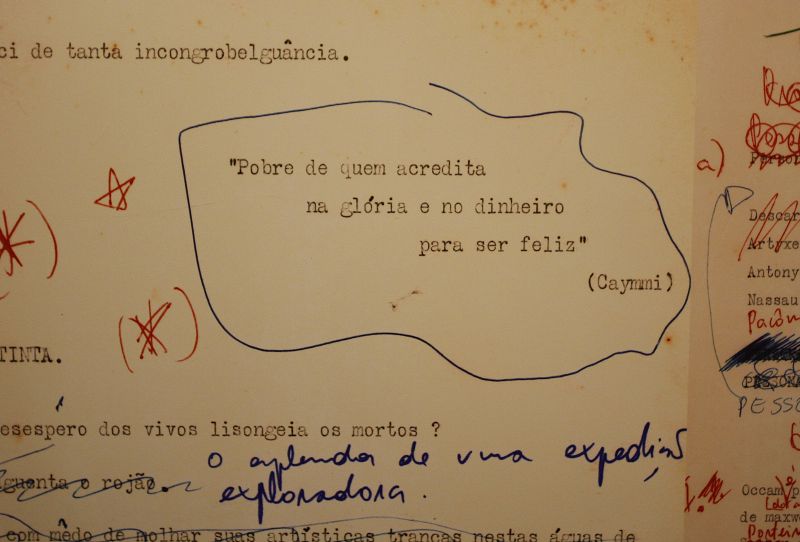 ci de tanta incongrobelguância.
"Pobre de quem acredita
na glória e no dinheiro
para ser feliz"
(Caymmi)
TINTA.
esespéro dos vivos lisongeia os mortos ?
guenta o rojão.
o de uma expedição
exploradora.
com mêdo de molhar suas artísticas tranças nestas águas de
a)
Descar
Artyxe
Antony
Nassau
Pacôm
PESSOA
PESSO
Occam
de maxwe